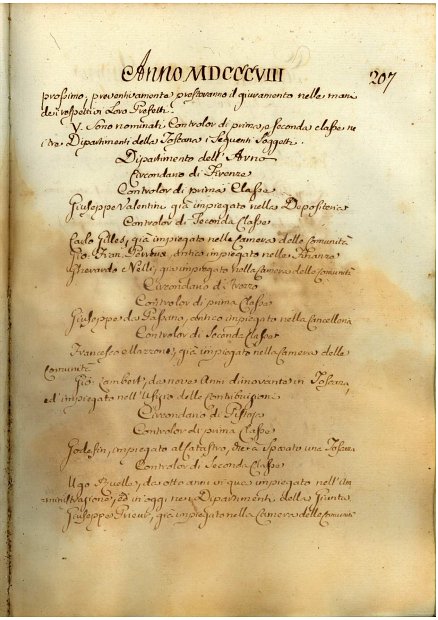 Anno MDCCCVIII
207
prossimo, preventivamente prosteranno il giuramento nelle mani
dei rispettivi Loro Prefetti.
V. Sono nominati Controlor di prima, e seconda classe ne
i tre Dipartimenti della Toscana i Seguenti Soggetti.
Dipartimento dell'Arno
Circondario di Firenze
Controlor di prima Classe
Giuseppe Valentini già impiegato nella Depositeria
Controlor di Seconda Classe
Carlo Gilles, già impiegato nella Camera delle Comunità
Gio: Fran: antico impiegato nelle Finanze
Gherardo Nelli, già impiegato nella Camera delle Comunità
Circondario di
Controlor di prima Classe
Giuseppe da antico impiegato nella Cancelleria
Controlor di Seconda Classe
Francesco Mazzoni, già impiegato nella Camera delle
Comunità
Gio: da nove Anni dimorante in Toscana,
ed impiegato nell'Ufizio delle Contribuzioni
Circondario di Pistoja
Controlor di prima Classe
impiegato al Catastro, che à Sposato una Toscana
Controlor di Seconda Classe
Ugo da otto anni in qua impiegato nell'Am
ministrazione, ed in oggi nei Dipartimenti della Giunta
Giuseppe già impiegato nella Camera delle Comunità